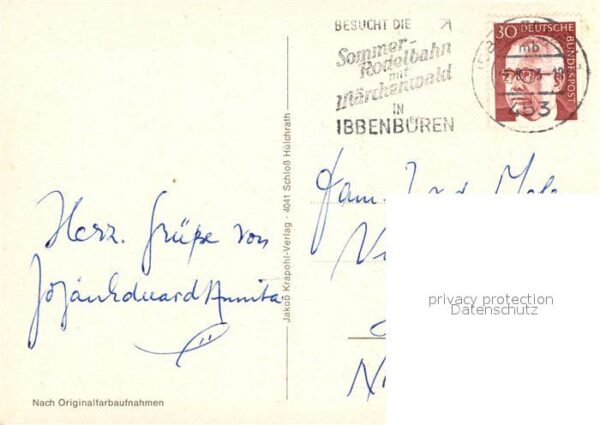 BESUCHT DIE
Sommer-
Rodelbahn
mit
Märchenwald
IN
IBBENBÜREN
30 DEUTSCHE
BUNDESPOST
mb
453
Fam.
Herz. Grüße von
Eduard Annita
Jakob Krapohl-Verlag · 4041 Schloß Hülchrath
privacy protection
Datenschutz
Nach Originalfarbaufnahmen